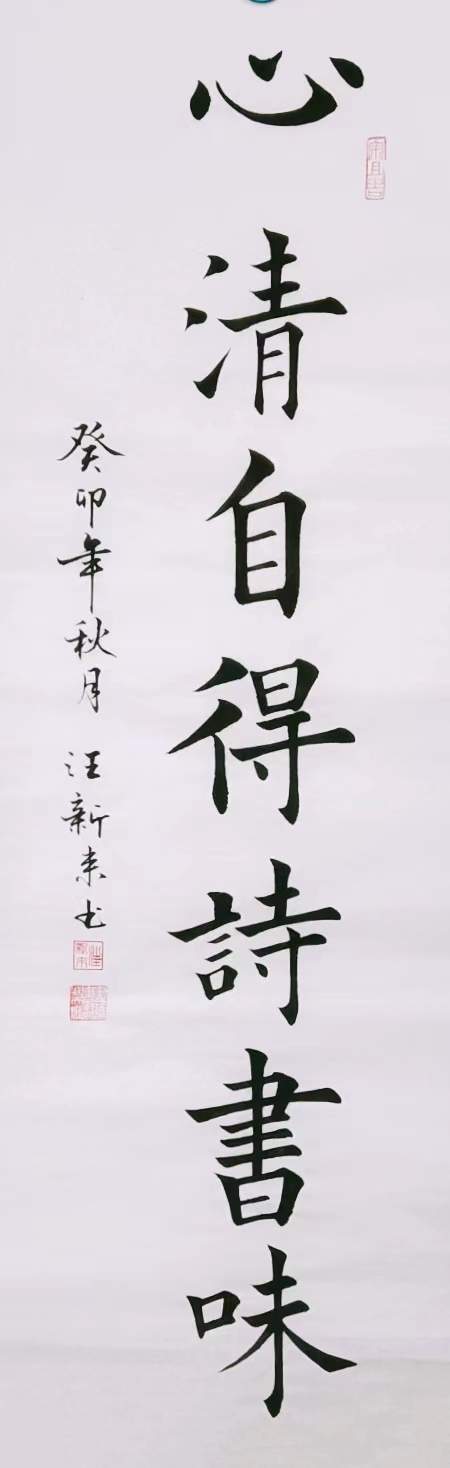 心清自得詩書味
癸卯年秋月 汪新來书